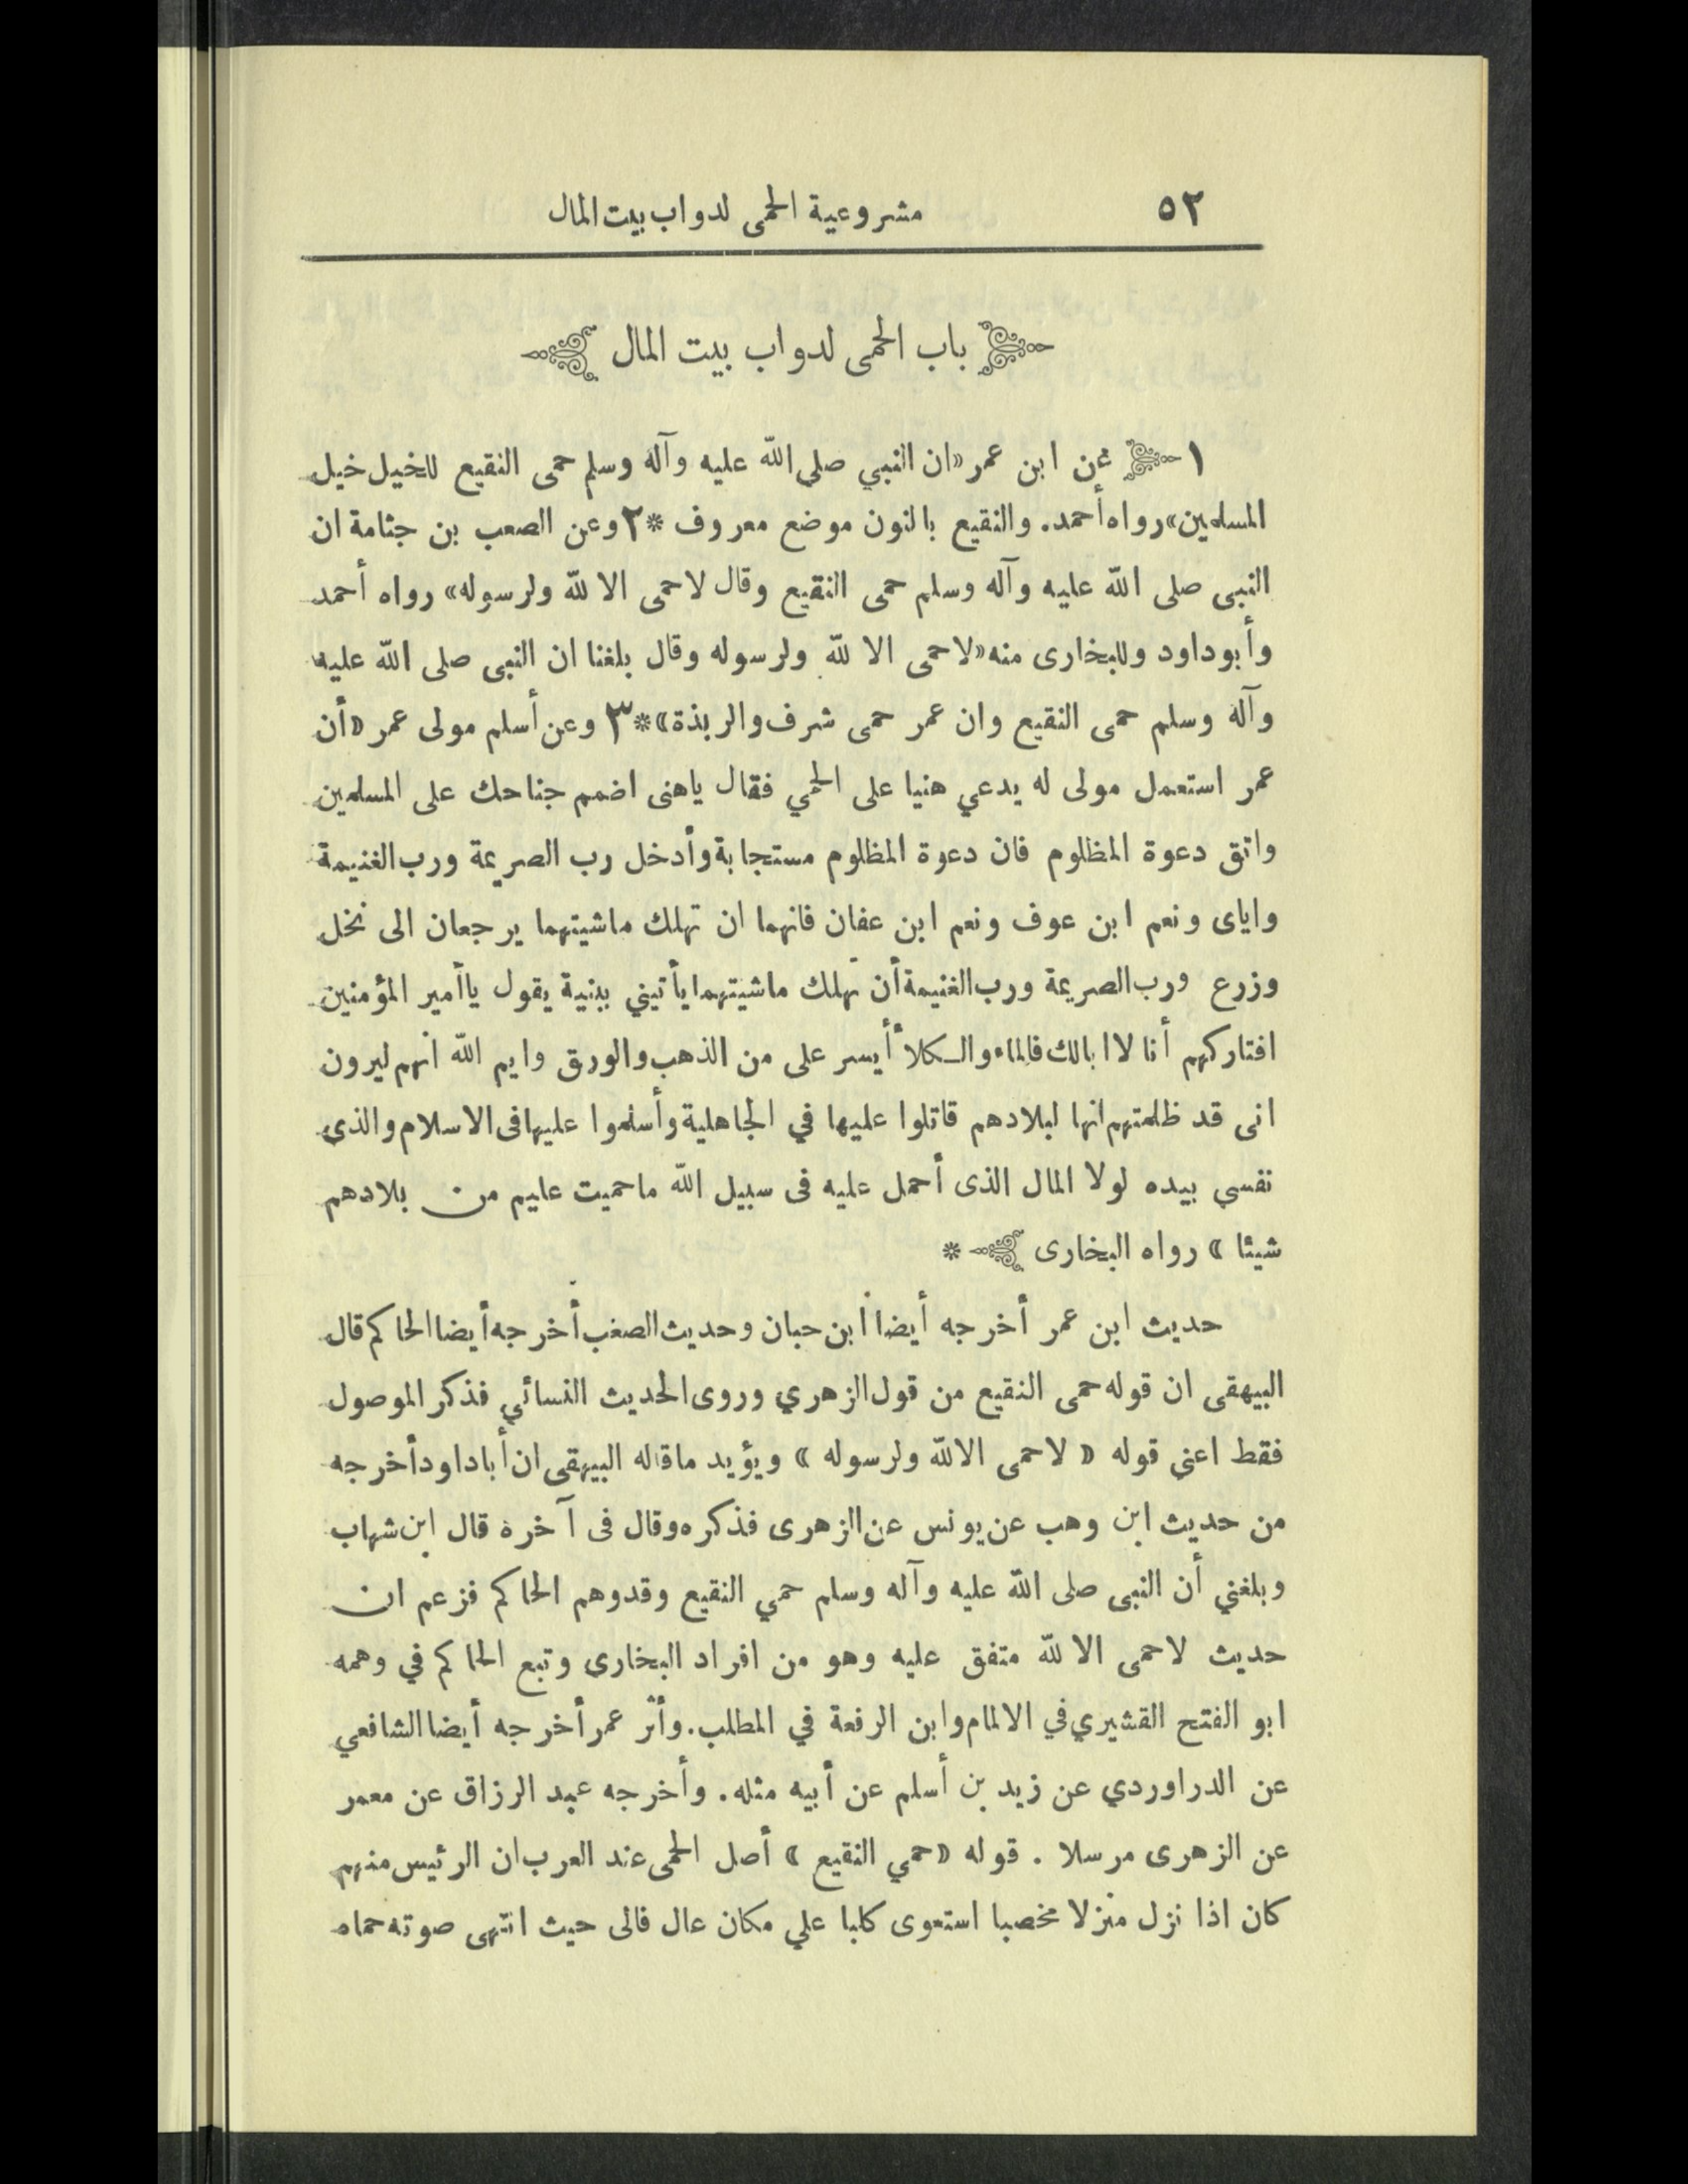 ٥٢ مشروعية الحمى لدواب بيت المال
باب الحمى لدواب بيت المال
١ عن ابن عمر «ان النبي صلى الله عليه وآله وسلم حمى النقيع للخيل خيل
المسلمين» رواه أحمد. والنقيع بالنون موضع معروف * ٢ وعن الصعب بن جثامة ان
النبى صلى الله عليه وآله وسلم حمى النقيع وقال لاحمى الا لله ولرسوله» رواه أحمد
وأبوداود وللبخارى منه «لاحمى الا لله ولرسوله وقال بلغنا ان النبى صلى الله عليه
وآله وسلم حمى النقيع وان عمر حمى شرف والربذة» * ٣ وعن أسلم مولى عمر «أن
عمر استعمل مولى له يدعي هنيا على الحمي فقال ياهنى اضمم جناحك على المسلمين
واتق دعوة المظلوم فان دعوة المظلوم مستجابة وأدخل رب الصريمة ورب الغنيمة
واياى ونعم ابن عوف ونعم ابن عفان فانهما ان تهلك ماشيتهما يرجعان الى نخل
وزرع ورب الصريمة ورب الغنيمة أن تهلك ماشيتهما يأتيني ببنية يقول ياأمير المؤمنين
افتاركهم أنا لاابالك فالماء والكلأ أيسر على من الذهب والورق وايم الله انهم ليرون
انى قد ظلمتهم انها لبلادهم قاتلوا عليها في الجاهلية وأسلموا عليها فى الاسلام والذى
نفسي بيده لولا المال الذى أحمل عليه فى سبيل الله ماحميت عليهم من بلادهم
شيئا» رواه البخارى *
حديث ابن عمر أخرجه أيضا ابن حبان وحديث الصعب أخرجه أيضا الحاكم قال
البيهقى ان قوله حمى النقيع من قول الزهري وروى الحديث النسائي فذكر الموصول
فقط اعني قوله «لاحمى الا لله ولرسوله» ويؤيد ماقاله البيهقى ان أباداود أخرجه
من حديث ابن وهب عن يونس عن الزهرى فذكره وقال فى آخره قال ابن شهاب
وبلغني أن النبى صلى الله عليه وآله وسلم حمي النقيع وقدوهم الحاكم فزعم ان
حديث لاحمى الا لله متفق عليه وهو من افراد البخارى وتبع الحاكم في وهمه
ابو الفتح القشيري في الالمام وابن الرفعة في المطلب. وأثر عمر أخرجه أيضا الشافعي
عن الدراوردي عن زيد بن أسلم عن أبيه مثله. وأخرجه عبد الرزاق عن معمر
عن الزهرى مرسلا. قوله «حمي النقيع» أصل الحمى عند العرب ان الرئيس منهم
كان اذا نزل منزلا مخصبا استعوى كلبا علي مكان عال فالى حيث انتهى صوته حماه